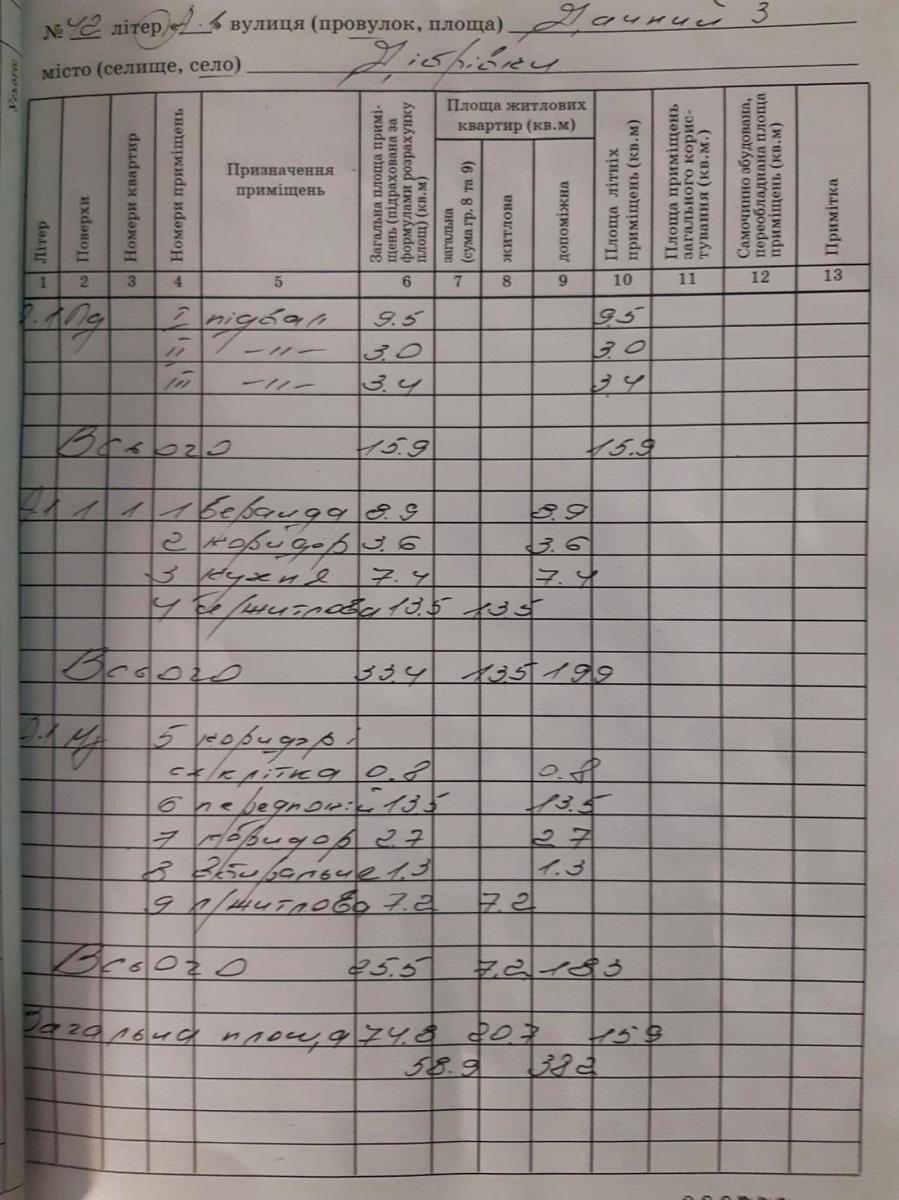 № 42 літер А-1 вулиця (провулок, площа) Дачний 3
місто (селище, село) Дібрівки
Усього:
Літер
Поверхи
Номери квартир
Номери приміщень
Призначення приміщень
Загальна площа примі-
щень (підрахована за
формулами розрахунку
площ) (кв.м)
Площа житлових
квартир (кв.м)
загальна
(сума гр. 8 та 9)
житлова
допоміжна
Площа літніх
приміщень (кв.м)
Площа приміщень
загального корис-
тування (кв.м.)
Самочинно збудована,
переобладнана площа
приміщень (кв.м)
Примітка
1 2 3 4 5 6 7 8 9 10 11 12 13
А.1 Пд I підвал 9.5 9.5
II -//- 3.0 3.0
III -//- 3.4 3.4
Всього 15.9 15.9
А.1 1 1 1 веранда 8.9 8.9
2 коридор 3.6 3.6
3 кухня 7.4 7.4
4 житлова 13.5 13.5
Всього 33.4 13.5 19.9
А.1 Мз 5 коридор і
сх/клітка 0.8 0.8
6 передпокій 13.5 13.5
7 коридор 2.7 2.7
8 1.3 1.3
9 п/житлова 7.2 7.2
Всього 25.5 7.2 183
Загальна площа 74.8 20.7 159
58.9 382